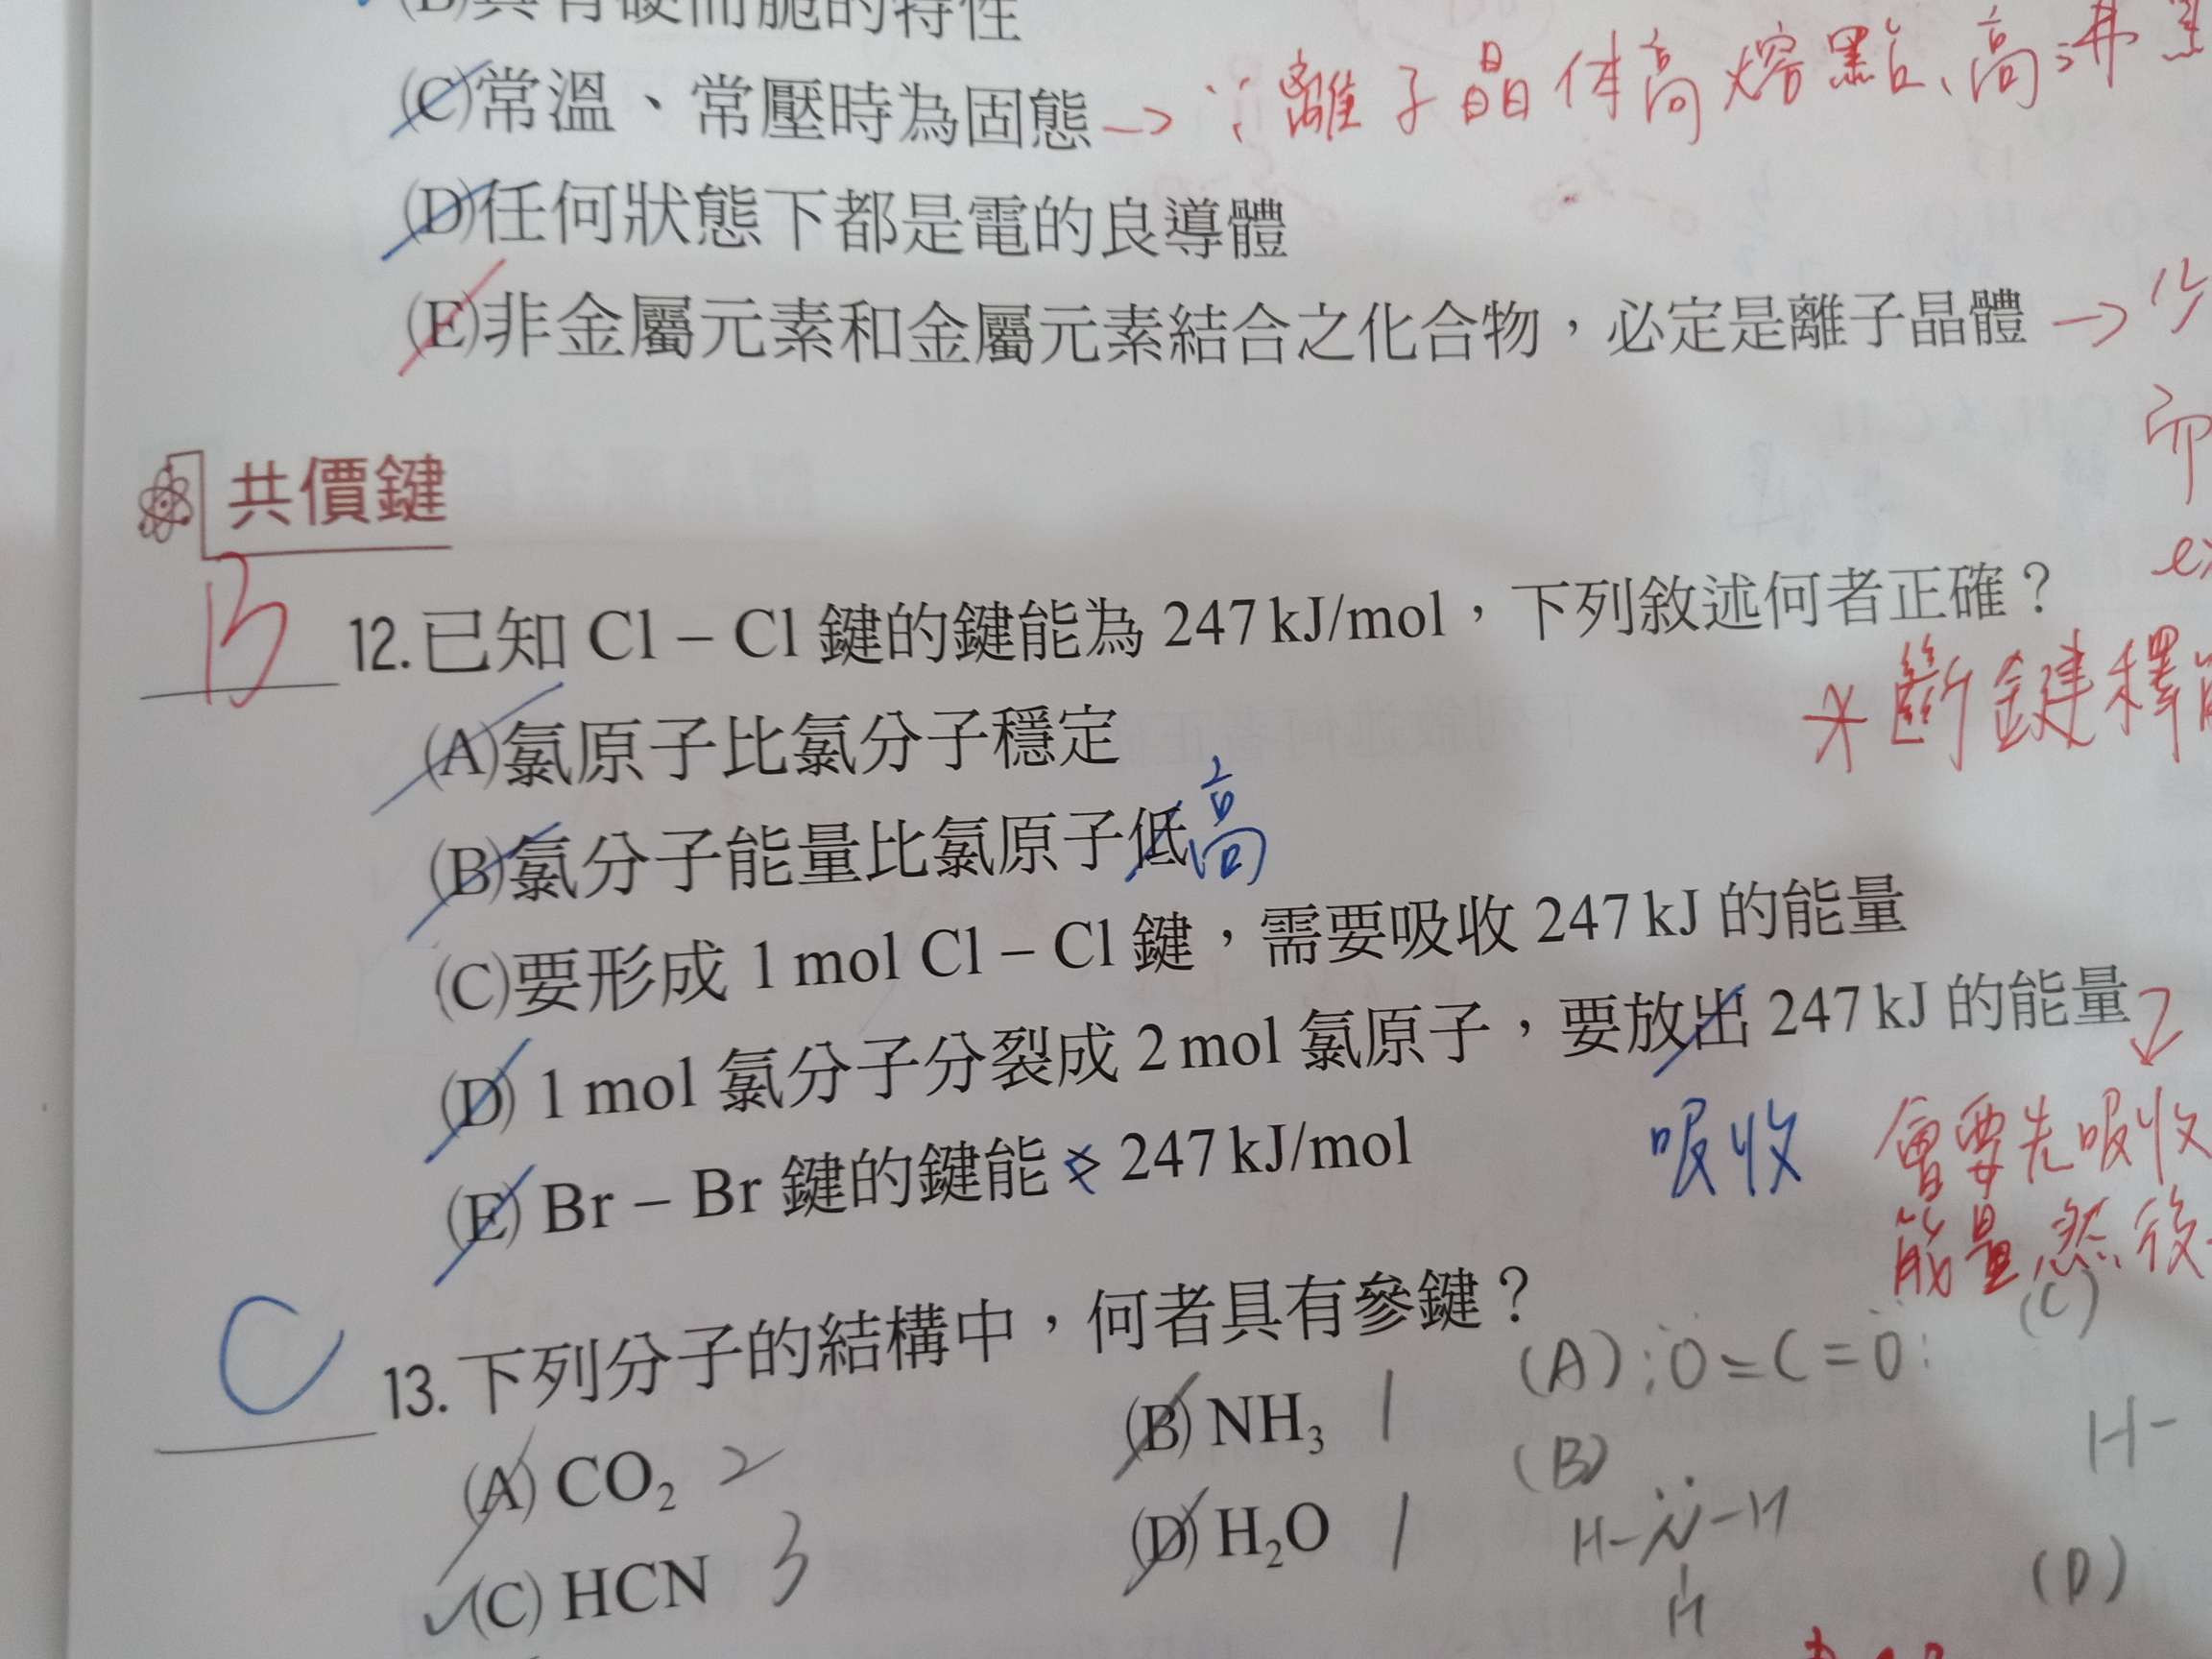 (B)具有硬而脆的特性
(C)常溫、常壓時為固態→∵離子晶体高熔點、高沸點
(D)任何狀態下都是電的良導體
(E)非金屬元素和金屬元素結合之化合物，必定是離子晶體→
共價鍵
B 12.已知 Cl – Cl 鍵的鍵能為 247 kJ/mol，下列敘述何者正確？
斷鍵釋
(A)氯原子比氯分子穩定
(B)氯分子能量比氯原子低高
(C)要形成 1 mol Cl – Cl 鍵，需要吸收 247 kJ 的能量
(D) 1 mol 氯分子分裂成 2 mol 氯原子，要放出 247 kJ 的能量
吸收 會要先吸收
能量,然後
(E) Br – Br 鍵的鍵能 > 247 kJ/mol
C 13.下列分子的結構中，何者具有參鍵？
(A) CO₂ 2 (B) NH₃ 1
(C) HCN 3 (D) H₂O 1
(A) :O=C=O:
(B)
H-N-H
H
(C)
H-
(D)